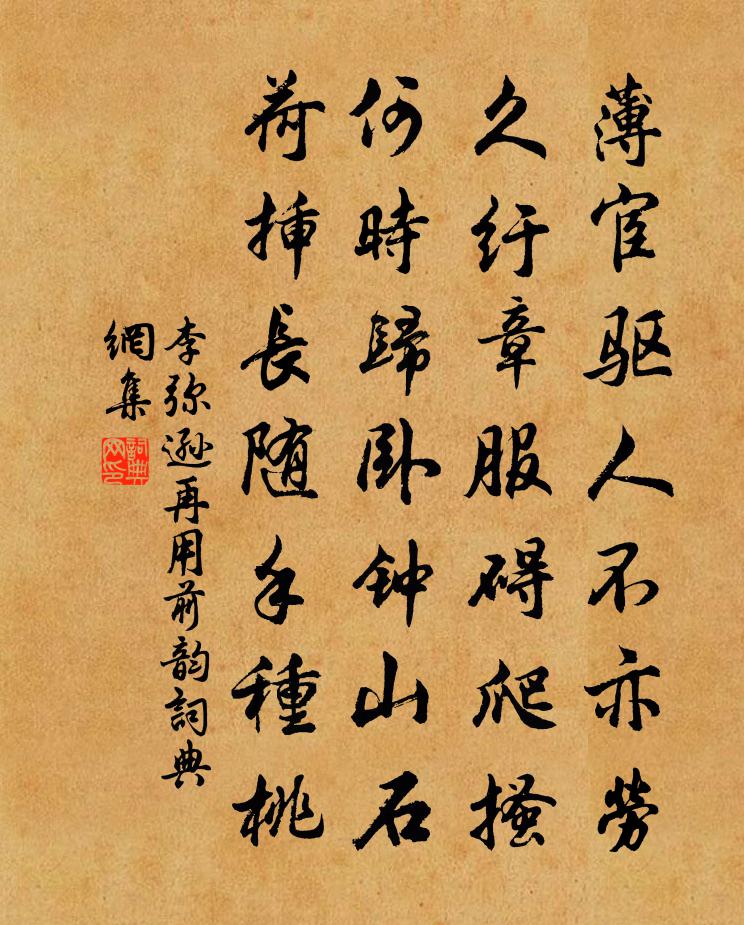 薄宦驱人不亦劳
久纡章服碍爬搔
何時歸卧钟山石
荷插長随手種桃
李弥遜再用前韵詞典
網集
詞典網印